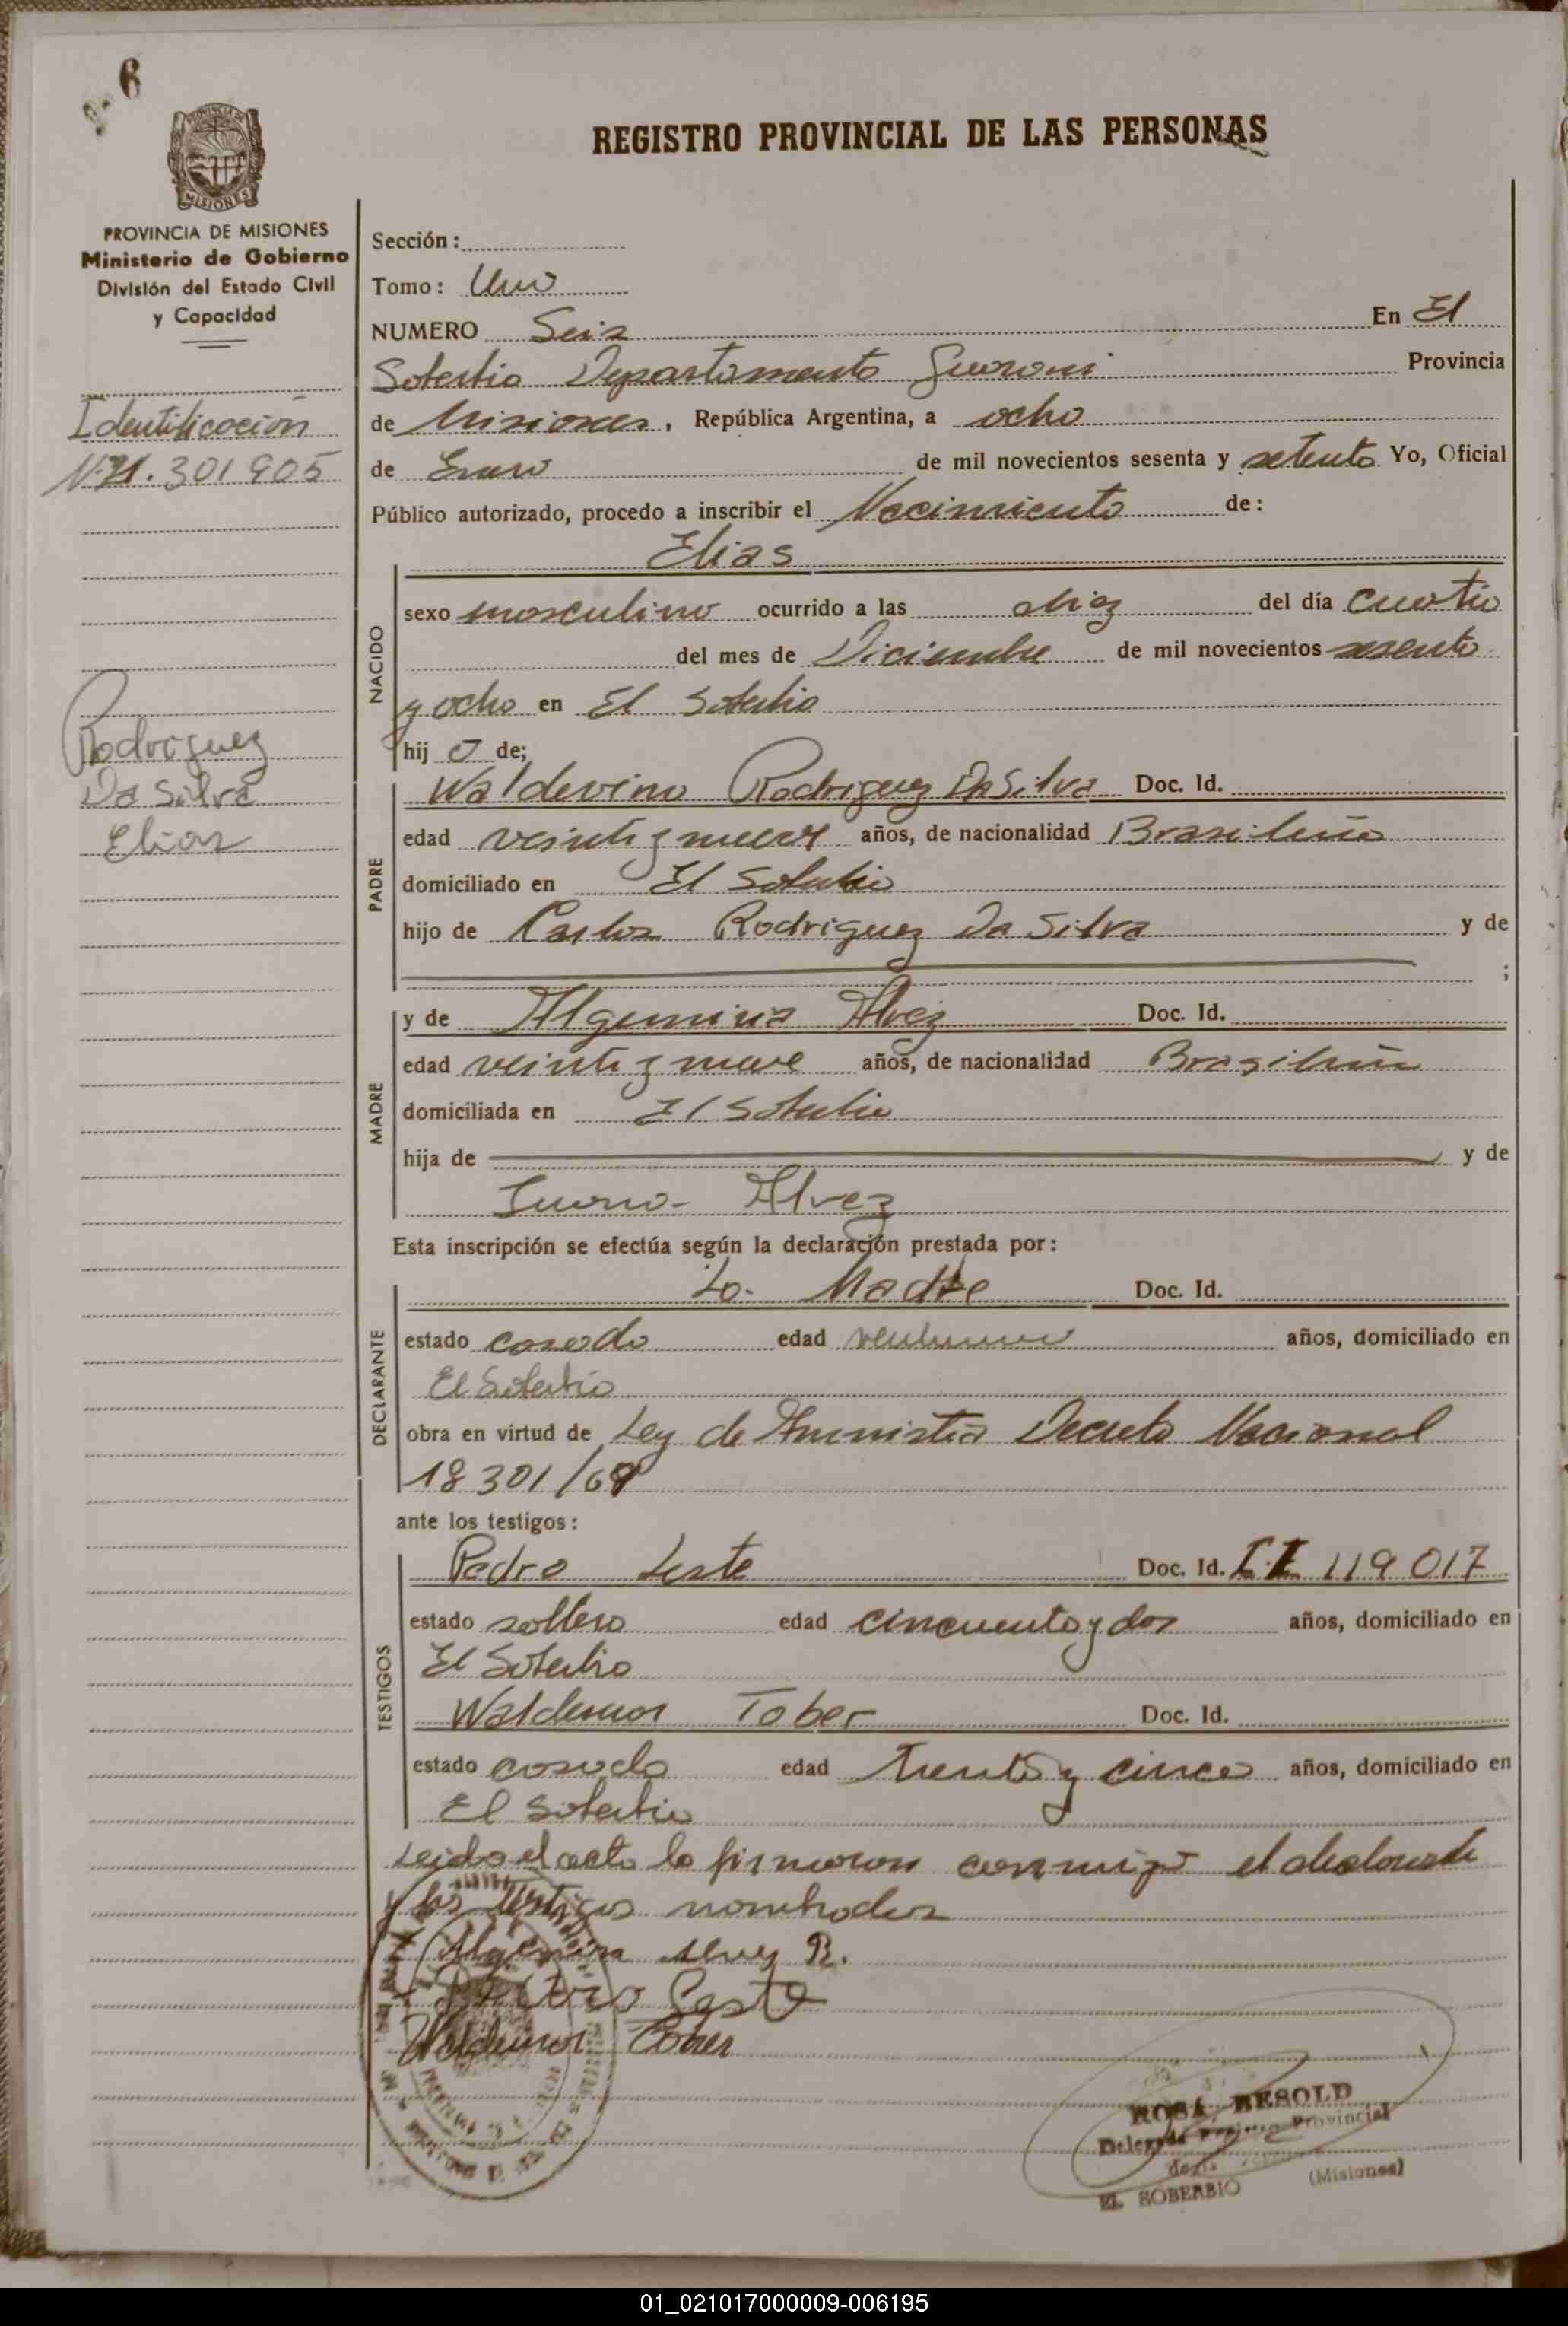 6
REGISTRO PROVINCIAL DE LAS PERSONAS
PROVINCIA DE MISIONES
Ministerio de Gobierno
División del Estado Civil
y Capacidad
Identificación
Nº 21.301905
Rodriguez
Da Silva
Elias
Sección:
Tomo: Uno
NUMERO Seis En El
Soberbio Departamento Guarani Provincia
de Misiones, República Argentina, a ocho
de Enero de mil novecientos sesenta y setenta Yo, Oficial
Público autorizado, procedo a inscribir el Nacimiento de:
Elias
NACIDO
sexo masculino ocurrido a las diez del día cuatro
del mes de Diciembre de mil novecientos sesenta
y ocho en El Soberbio
hij o de;
PADRE
Waldevino Rodriguez Da Silva Doc. Id.
edad veinti y nueve años, de nacionalidad Brasileña
domiciliado en El Soberbio
hijo de Carlos Rodriguez Da Silva y de
;
MADRE
y de Algemira Alvez Doc. Id.
edad veinti y nueve años, de nacionalidad Brasileña
domiciliada en El Soberbio
hija de y de
Alvez
Esta inscripción se efectúa según la declaración prestada por:
DECLARANTE
La Madre Doc. Id.
estado casado edad años, domiciliado en
El Soberbio
obra en virtud de Ley de Amnistia Decreto Nacional
18301/69
ante los testigos:
TESTIGOS
Pedro Leste Doc. Id. 119017
estado soltero edad cincuenta y dos años, domiciliado en
El Soberbio
Waldemar Tober Doc. Id.
estado casado edad Treinta y cinco años, domiciliado en
El Soberbio
Leida el acta la firmaron conmigo el declarante
y los testigos nombrados
Algemira Alvez R.
Pedro Leste
Waldemar Tober
ROSA BESOLD
Delegada Registro Provincial
de las Personas
EL SOBERBIO (Misiones)
01_021017000009-006195